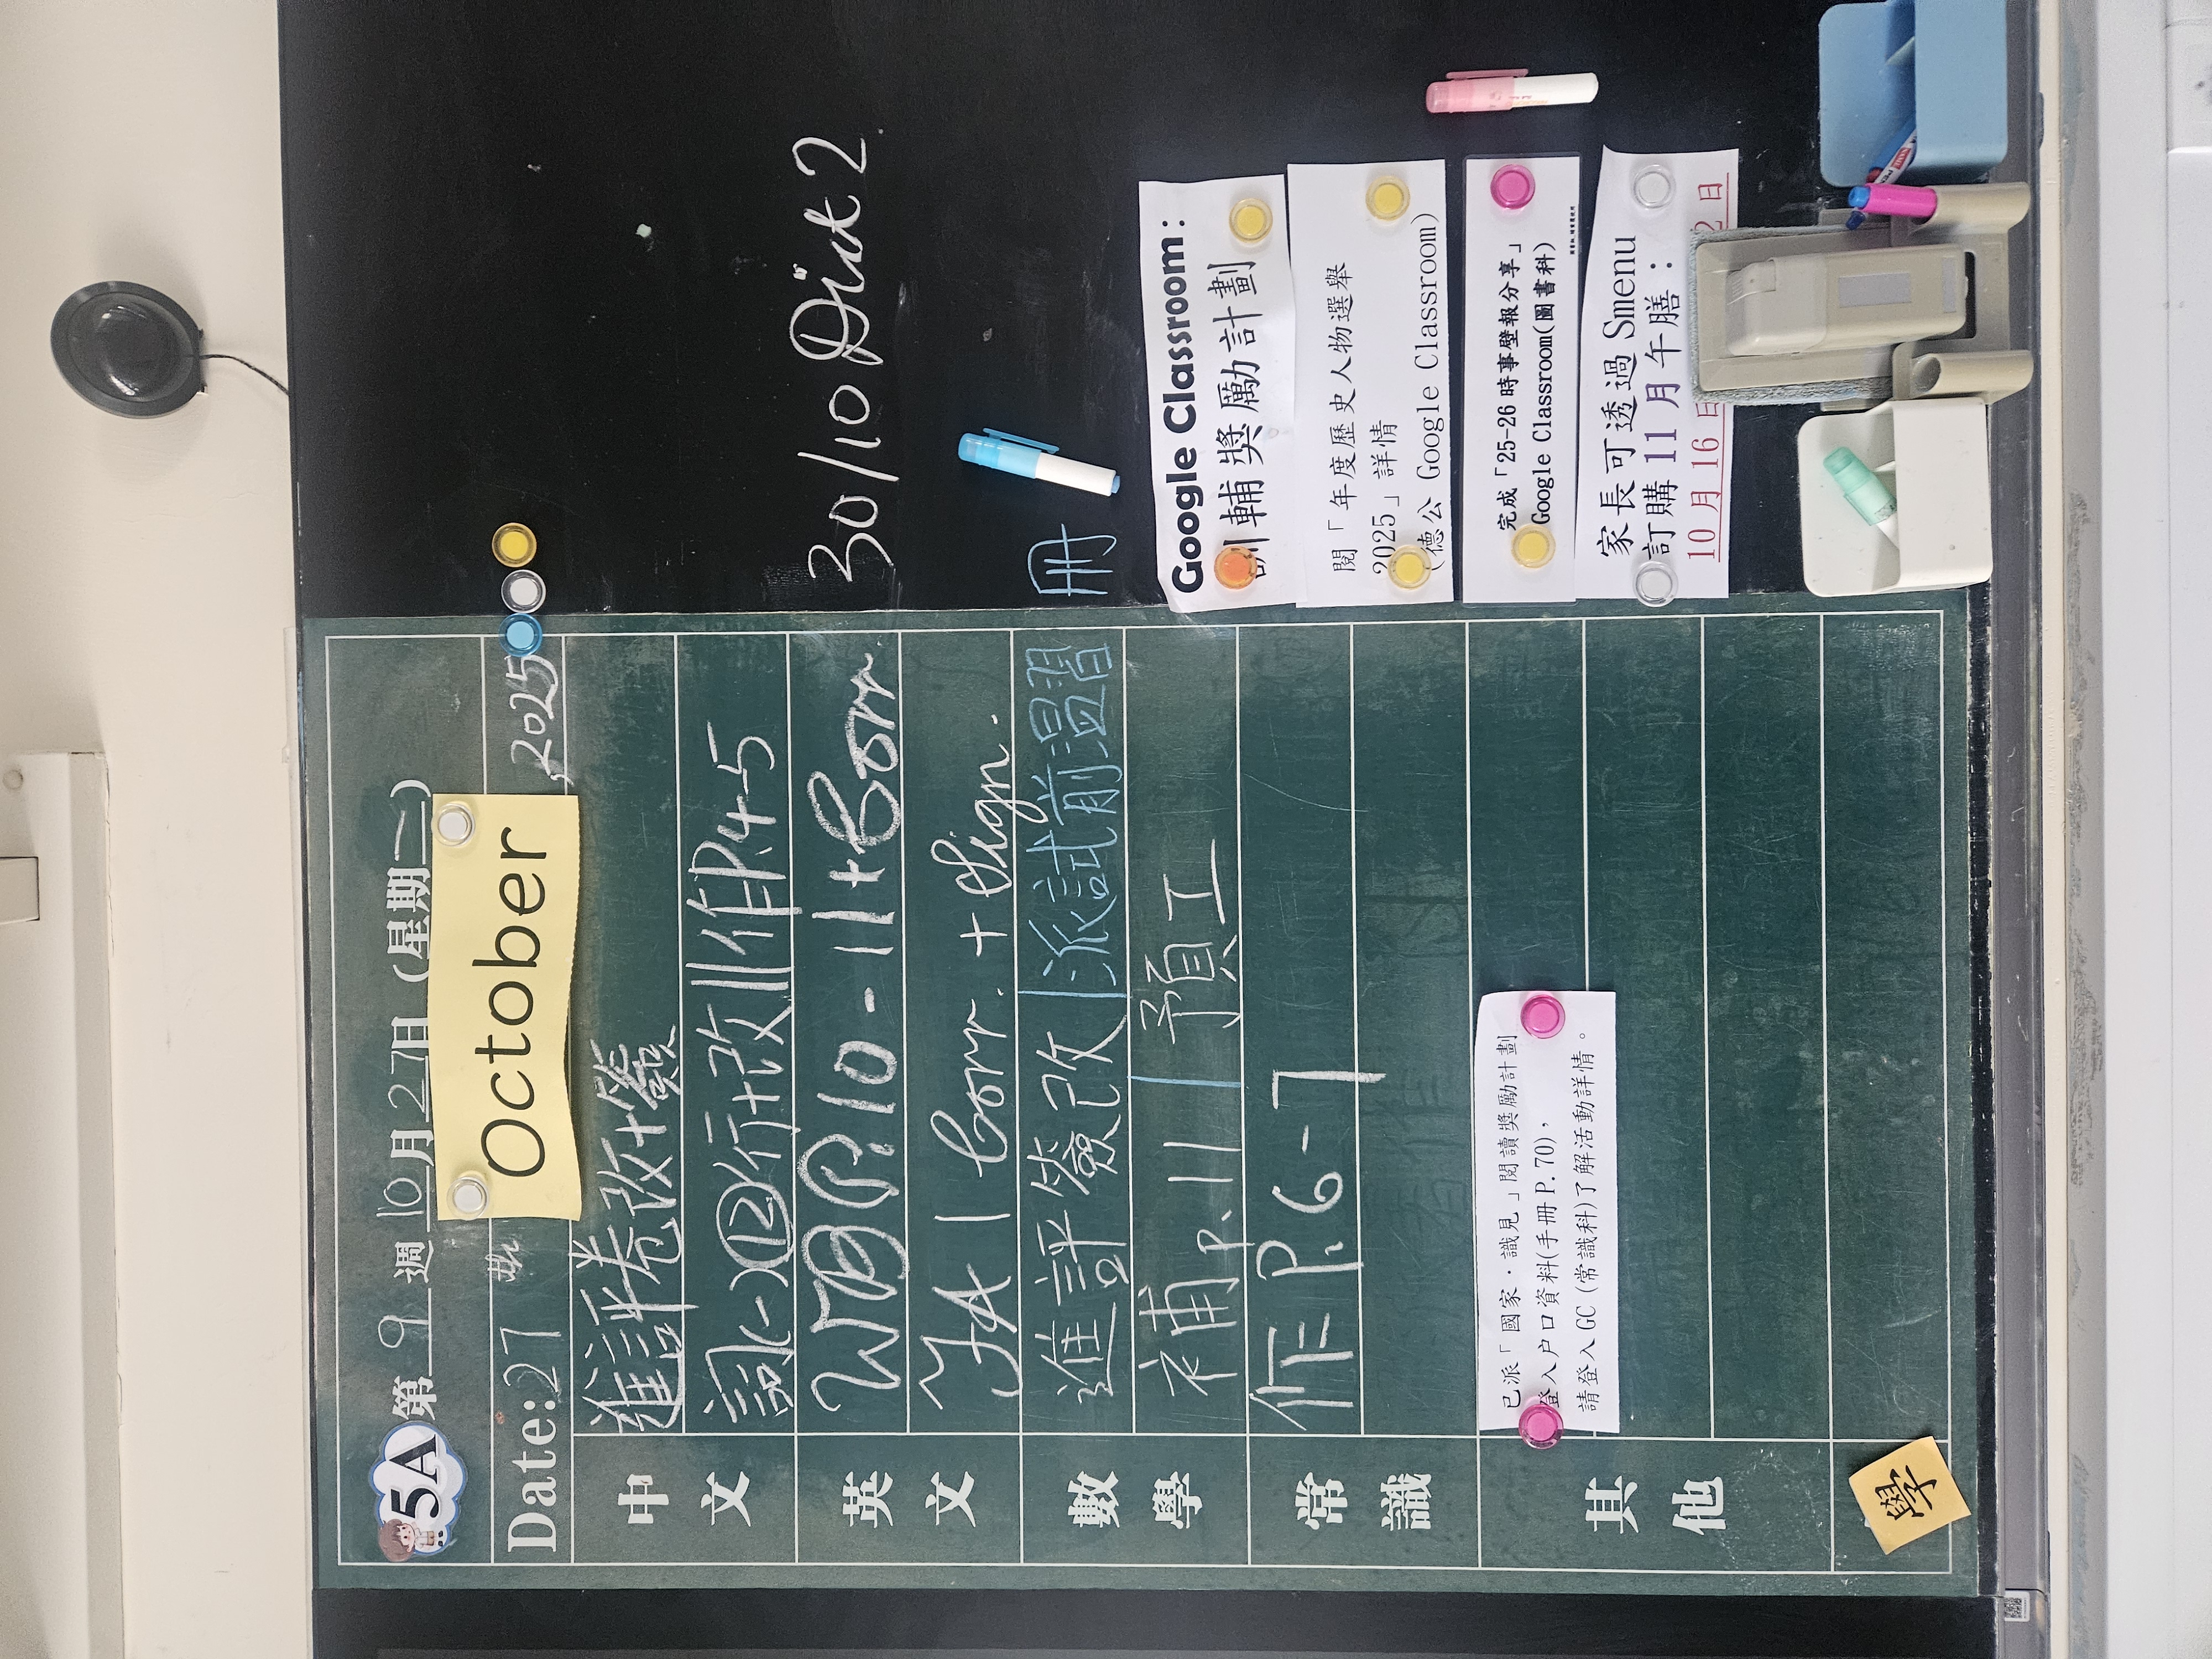 5A 第 9 週 10 月 27 日 (星期一)
October
Date: 27 th , 2025
中文
進評卷改+簽
詞(一)⑫行+改||作P.4-5
英文
WB P.10-11+Corr.
GA 1 Corr. + Sign.
數學
進評簽改|派試前溫習冊
補P.11|預工
常識
作P.6-7
其他
已派「國家·識見」閱讀獎勵計劃
登入户口資料(手冊P.70),
請登入GC (常識科)了解活動詳情。
學
30/10 Dict 2
Google Classroom:
訓輔獎勵計劃
閱「年度歷史人物選舉
2025」詳情
(德公 Google Classroom)
完成「25-26 時事壁報分享」
Google Classroom(圖書科)
家長可透過 Smenu
訂購 11 月午膳:
10 月 16 日 2 日